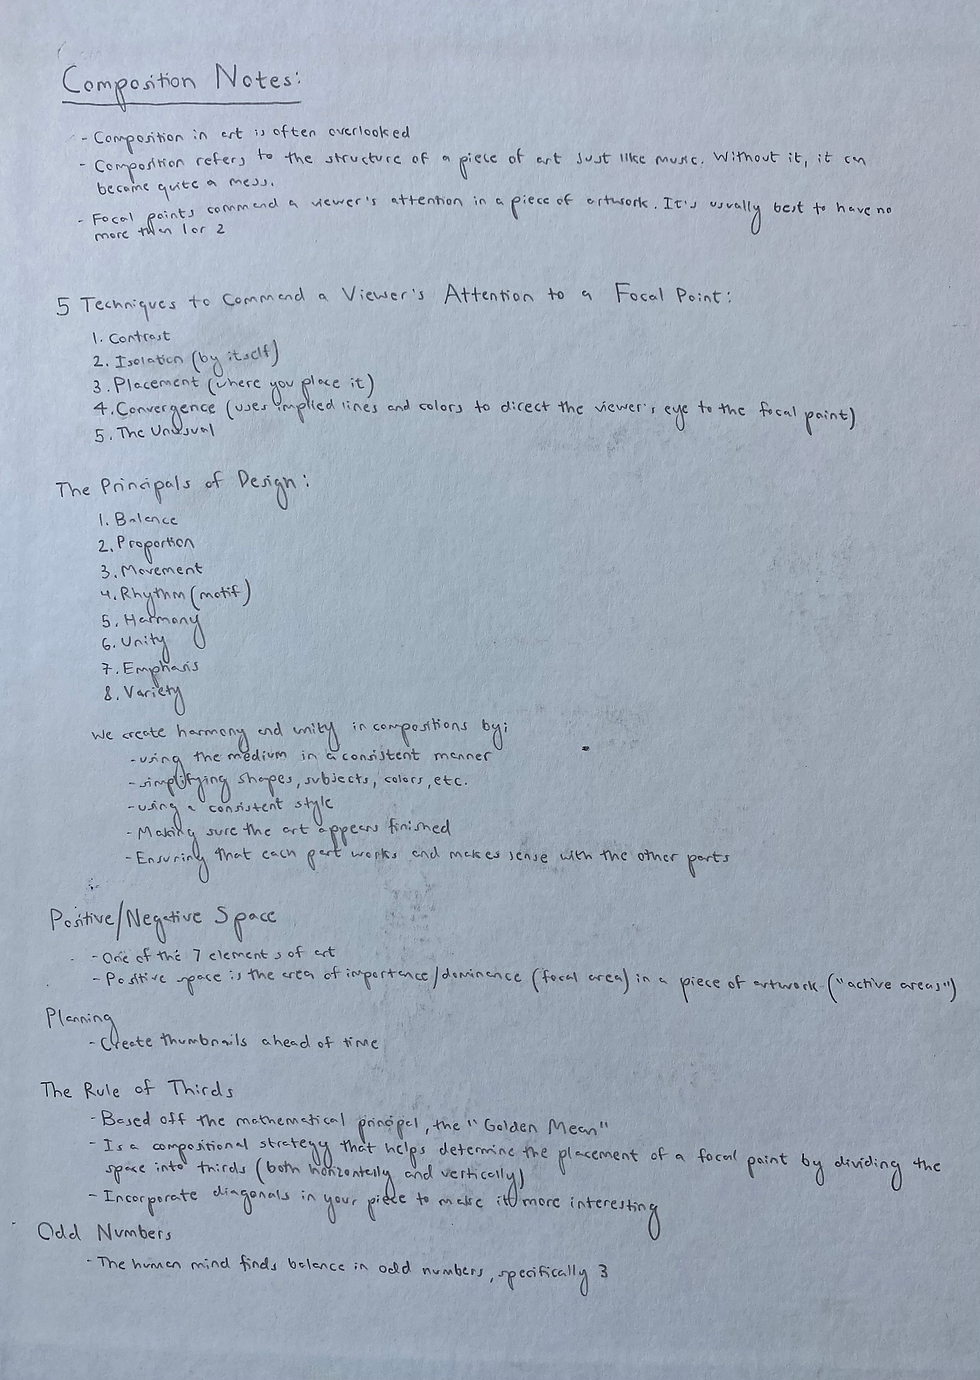 Composition Notes:
- Composition in art is often overlooked
- Composition refers to the structure of a piece of art just like music. Without it, it can
become quite a mess.
- Focal points command a viewer's attention in a piece of artwork. It's usually best to have no
more than 1 or 2
5 Techniques to Command a Viewer's Attention to a Focal Point:
1. Contrast
2. Isolation (by itself)
3. Placement (where you place it)
4. Convergence (uses implied lines and colors to direct the viewer's eye to the focal point)
5. The Unusual
The Principals of Design:
1. Balance
2. Proportion
3. Movement
4. Rhythm (motif)
5. Harmony
6. Unity
7. Emphasis
8. Variety
We create harmony and unity in compositions by;
- using the medium in a consistent manner
- simplifying shapes, subjects, colors, etc.
- using a consistent style
- Making sure the art appears finished
- Ensuring that each part works and makes sense with the other parts
Positive/Negative Space
- One of the 7 elements of art
- Positive space is the area of importance/dominance (focal area) in a piece of artwork ("active areas")
Planning
- Create thumbnails ahead of time
The Rule of Thirds
- Based off the mathematical principal, the "Golden Mean"
- Is a compositional strategy that helps determine the placement of a focal point by dividing the
space into thirds (both horizontally and vertically)
- Incorporate diagonals in your piece to make it more interesting
Odd Numbers
- The human mind finds balance in odd numbers, specifically 3